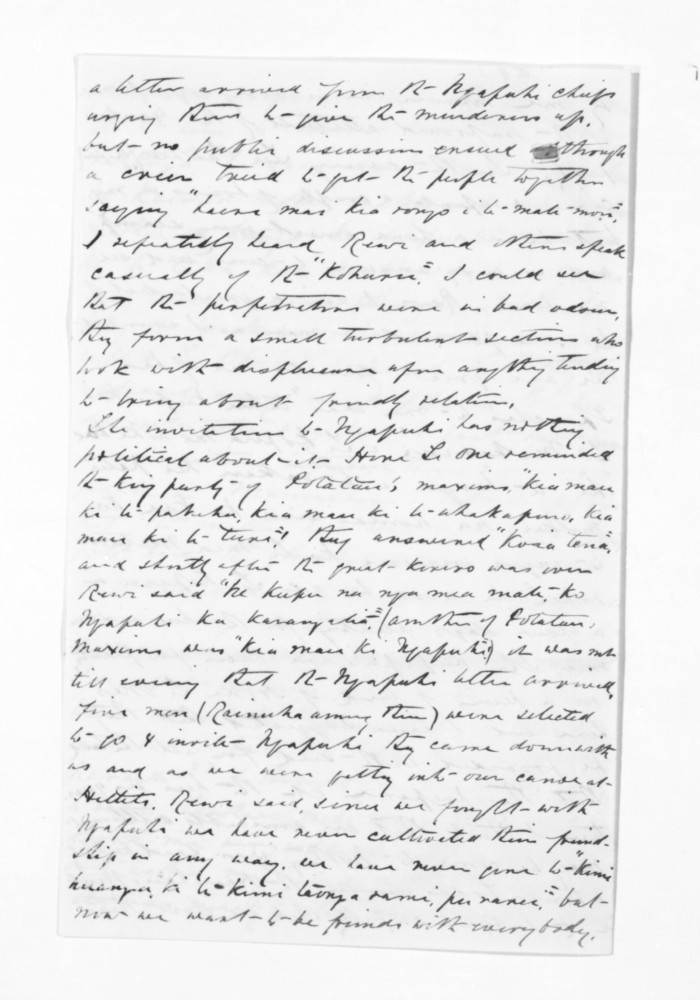 a letter arrived from the Ngapuhi chiefs
urging them to give the murderers up,
but no public discussion ensued although
a crier tried to get the people together
saying "haere mai kia rongo i te mate mou".
I repeatedly heard Rewi and others speak
casually of the "Kohuru". I could see
that the perpetrators were in bad odour,
they form a small turbulent section who
look with displeasure upon anything tending
to bring about friendly relations,
The invitation to Ngapuhi has nothing
political about it. Hone Te one reminded
the King party of Potatau's maxims, "kia mau
ki te pakeha, kia mau ki te whakapono, kia
mau ki te ture"! they answered "Koia tena",
and shortly after the great korero was over
Rewi said "he kupu na nga mea mate, ko
Ngapuhi ka karangatia", (another of Potatau's
maxims was "kia mau ki Ngapuhi") it was not
till evening that the Ngapuhi letter arrived,
five men ( among them) were selected
to go & invite Ngapuhi they came down with
us and as we were getting into our canoe at
Rewi said, since we fought with
Ngapuhi we have never cultivated their friend-
ship in any way, we have never gone to "kimi
huanga, ki te kimi taonga ranei, pu ranei", but
now we want to be friends with everybody.